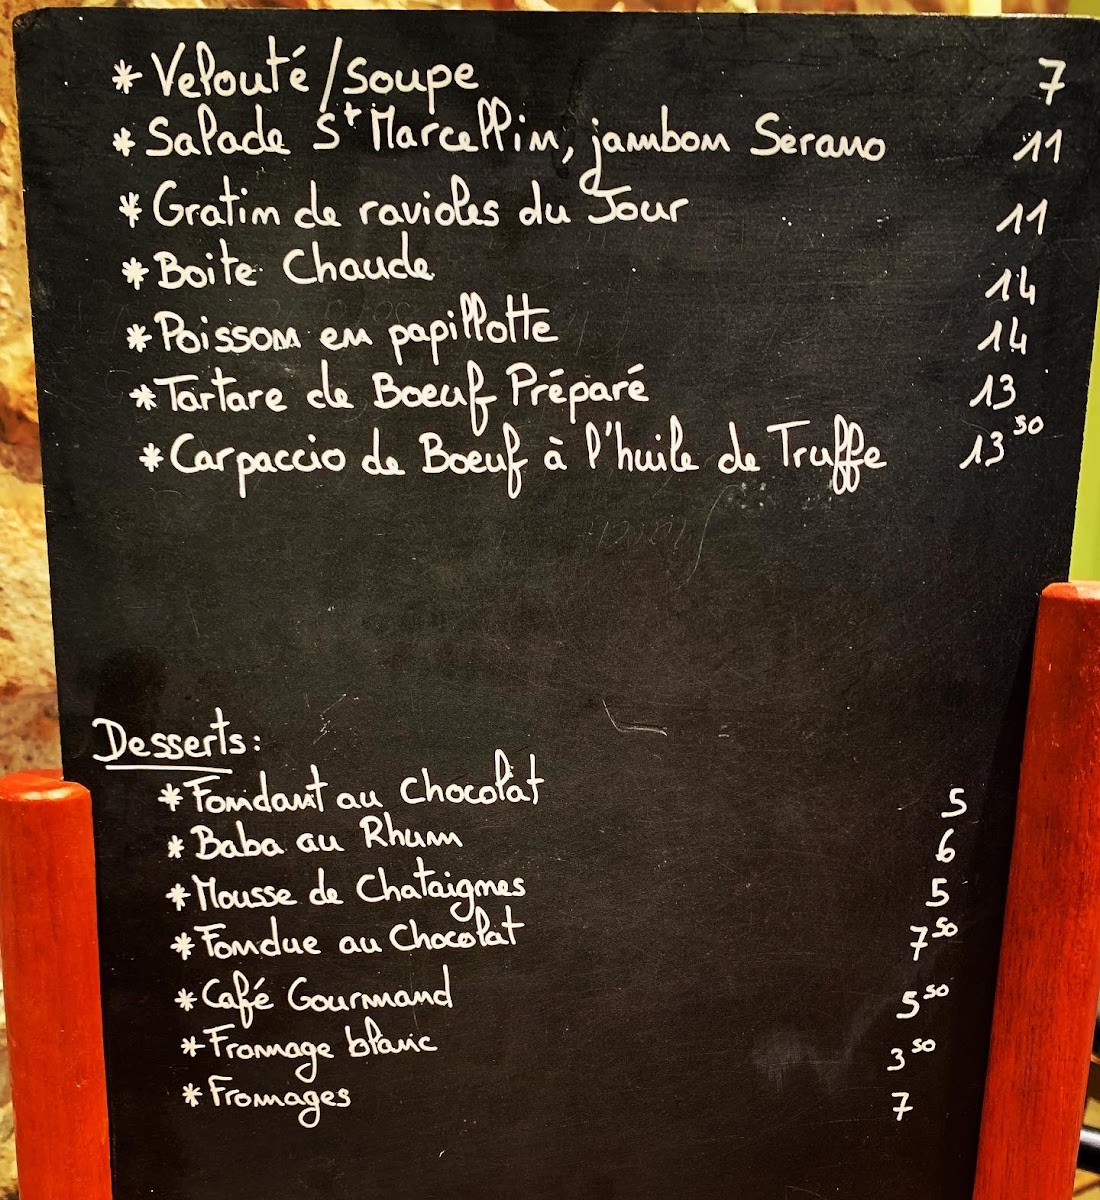 * Velouté/soupe 7
* Salade St Marcellin, jambon Serano 11
* Gratin de ravioles du Jour 11
* Boite Chaude 14
* Poisson en papillotte 14
* Tartare de Boeuf Préparé 13
* Carpaccio de Boeuf à l'huile de Truffe 13 50
Desserts:
* Fondant au Chocolat 5
* Baba au Rhum 6
* Mousse de Chataignes 5
* Fondue au Chocolat 7 50
* Café Gourmand 5 50
* Fromage blanc 3 50
* Fromages 7